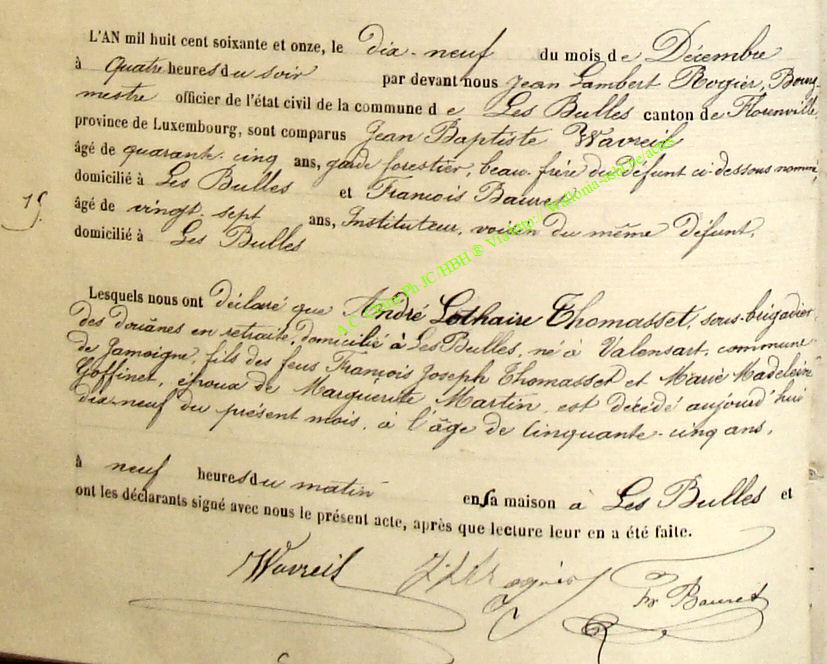 L'AN mil huit cent soixante et onze, le dix-neuf du mois de Décembre
à quatre heures du soir par devant nous Jean Lambert Rogier, Bourg-
mestre officier de l'état civil de la commune de Les Bulles canton de Florenville
province de Luxembourg, sont comparus Jean Baptiste Wavreil
âgé de quarante-cinq ans, garde forestier, beau-frère du défunt ci-dessous nommé,
domicilié à Les Bulles et François Bauret
15.
âgé de vingt-sept ans, Instituteur, voisin du même défunt,
domicilié à Les Bulles
Lesquels nous ont déclaré que André Lothaire Thomasset, sous-brigadier
des douânes en retraite, domicilié à Les Bulles, né à Valensart, commune
de Jamoigne, fils des feus François Joseph Thomasset et Marie Madeleine
Goffinet, époux de Marguerite Martin, est décédé aujourd'hui
dix-neuf du présent mois, à l'âge de cinquante-cinq ans,
à neuf heures du matin en sa maison à Les Bulles et
ont les déclarants signé avec nous le présent acte, après que lecture leur en a été faite.
Wavreil
Fx Bauret